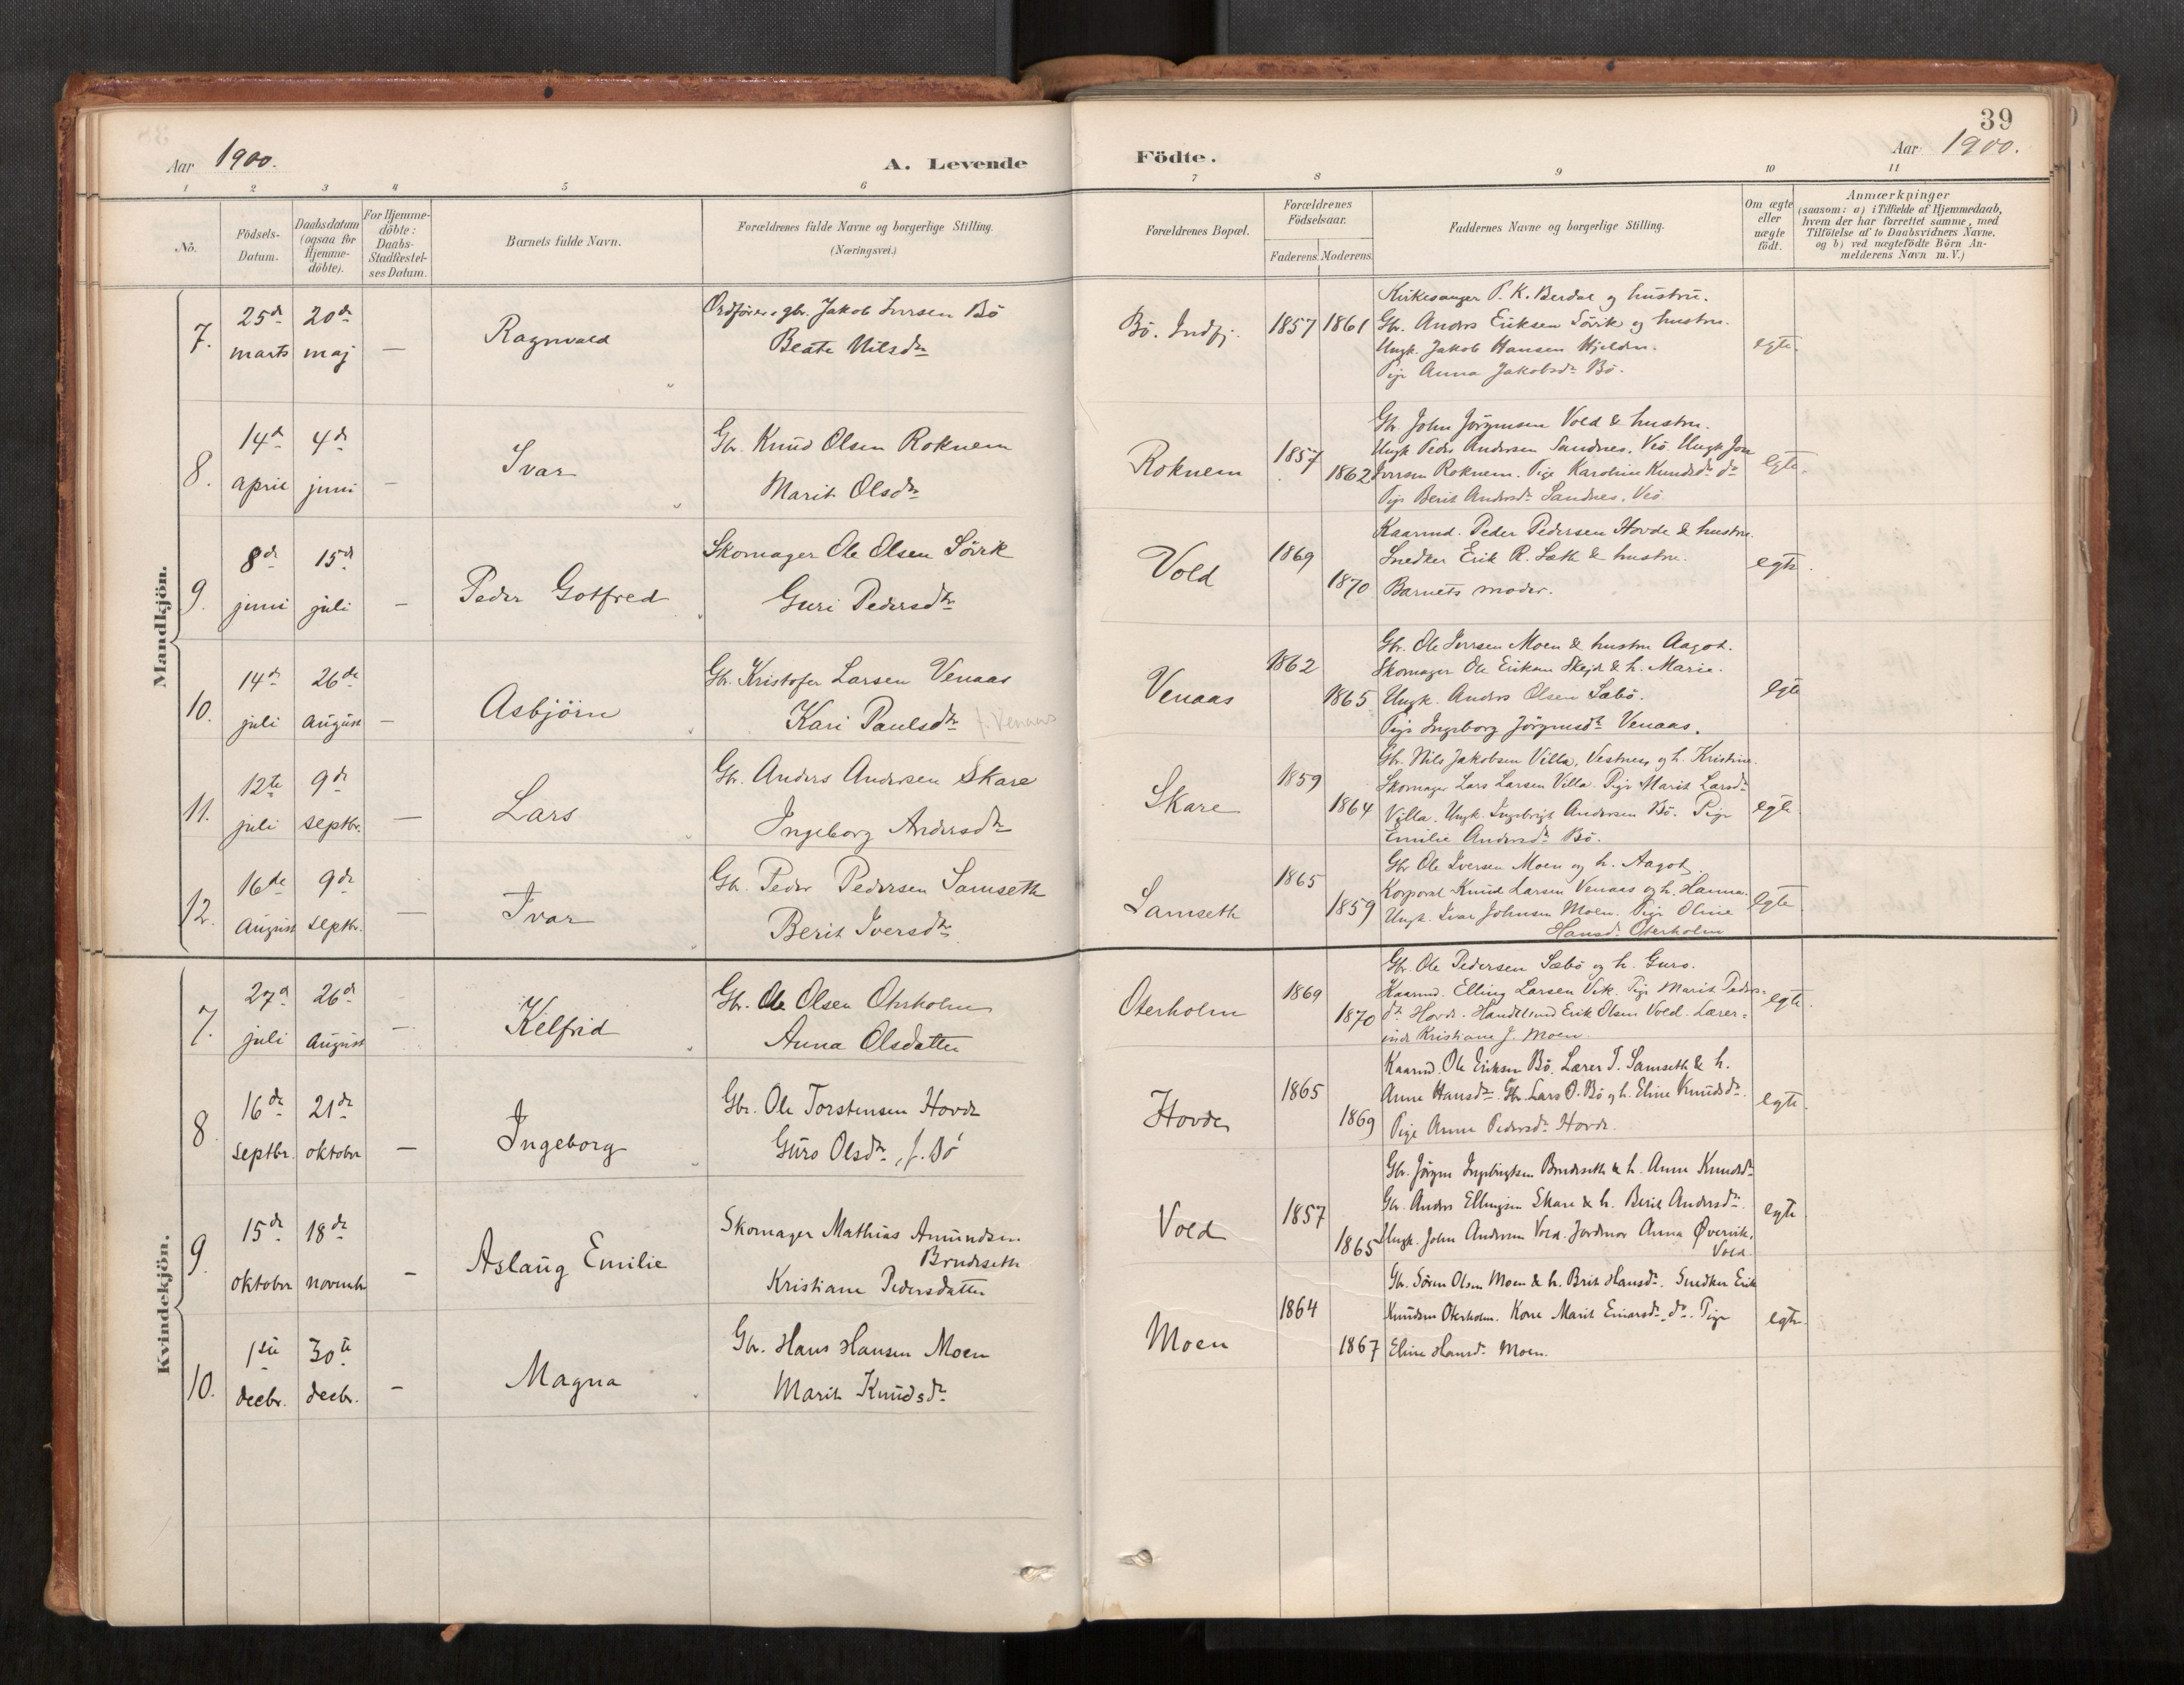 Aar 1900.
A. Levende
1 2 3 4 5 6
No.
Födsels-
Datum.
Daabsdatum
(ogsaa for
Hjemme-
döbte).
For Hjemme-
döbte:
Daabs-
Stadfæstel-
ses Datum.
Barnets fulde Navn.
Forældrenes fulde Navne og borgerlige Stilling.
(Næringsvei.)
Mandkjön.
7.
25de
marts
20de
maj
—
Ragnvald
Ordförer, gbr. Jakob Iversen Bö
Beate Nilsdtr
8.
14de
april
4de
juni
—
Ivar
Gbr. Knud Olsen Roknem
Marit Olsdtr
9.
8de
juni
15de
juli
—
Peder Gotfred
Skomager Ole Olsen Sörvik
Guri Pedersdtr
10.
14de
juli
26de
August
—
Asbjörn
Gbr. Kristofer Larsen Venaas
Kari Paulsdtr f. Venaas
11.
12te
juli
9de
septbr.
—
Lars
Gbr. Anders Andersen Skare
Ingeborg Andersdtr
12.
16de
August
9de
septbr.
—
Ivar
Gbr. Peder Pedersen Samseth
Berit Iversdtr
Kvindekjön.
7.
27de
juli
26de
August
—
Kelfrid
Gbr. Ole Olsen Oterholm
Anna Olsdatter
8.
16de
septbr.
21de
oktober
—
Ingeborg
Gbr. Ole Torstensen Hovde
Guro Olsdtr, f. Bö
9.
15de
oktober
18de
novembr
—
Aslaug Emilie
Skomager Mathias Amundsen
Brudeseth
Kristiane Pedersdatter
10.
1ste
decbr.
30te
decbr.
—
Magna
Gbr. Hans Hansen Moen
Marit Knudsdtr
39
Födte.
Aar 1900.
7 8 9 10 11
Forældrenes Bopæl.
Forældrenes
Födselsaar.
Faderens. Moderens.
Faddernes Navne og borgerlige Stilling.
Om ægte
eller
uægte
födt.
Anmærkninger
(saasom: a) i Tilfælde af Hjemmedaab,
hvem der har forrettet samme, med
Tilföielse af to Daabsvidners Navne,
og b) ved uægtefödte Börn An-
melderens Navn m. V.)
Bö. Indfj. 1857 1861
Kirkesanger P. K. Berdal og hustru.
Gbr. Anders Eriksen Sörvik og hustru.
Ungk. Jakob Hansen Hjelden.
Pige Anna Jakobsdtr Bö.
egte.
Roknem 1857 1862
Gbr. John Jörgensen Vold & hustru.
Ungk Peder Andersen Sandnes, Veö. Ungk Jon
Iversen Roknem. Pige Karoline Knudsdtr do
Pige Berit Andersdtr Sandnes, Veö.
egte.
Vold 1869 1870
Kaarmd. Peder Pedersen Hovde & hustru.
Snedker Erik R. Sæth & hustru.
Barnets moder.
egte.
Venaas 1862 1865
Gbr. Ole Iversen Moen & hustru Aagot.
Skomager Ole Eriksen & h. Marie.
Ungk. Anders Olsen Sæbö.
Pige Ingeborg Jörgensdtr Venaas.
egte
Skare 1859 1864
Gbr. Nils Jakobsen Villa, Vestnes, og h. Kristine.
Skomager Lars Larsen Villa. Pige Marit Larsdtr
Villa. Ungk. Ingebrigt Andersen Bö. Pige
Emilie Andersdtr Bö.
egte.
Samseth 1865 1859
Gbr Ole Iversen Moen og h. Aagot,
Korporal Knud Larsen Venaas og h. Hanna.
Ungk. Ivar Johnsen Moen. Pige Oline
Hansd. Oterholm
egte.
Oterholm 1869 1870
Gbr. Ole Pedersen Sæbö og h. Guro.
Kaarmd. Elling Larsen Vik. Pige Marit Peders-
dtr Hovde. Handelsmd Erik Olsen Vold. Lærer-
inde Kristiane J. Moen.
egte.
Hovde 1865 1869
Kaarmd. Ole Eriksen Bö. Lærer I. Samseth & h.
Anne Hansdtr. Gbr. Lars O. Bö og h. Eline Knudsdtr.
Pige Anne Pedersdtr Hovde.
egte.
Vold 1857 1865
Gbr. Jörgen Ingebrigtsen Brudeseth & h. Anne Knudsdtr
Gbr. Anders Ellingsen Skare & h. Berit Andersdtr.
Ungk. John Andersen Vold. Jordmor Anna Øvervik,
Vold.
egte
Moen 1864 1867
Gbr. Sören Olsen Moen & h. Brit Hansdtr. Snedker Erik
Knudsen Oterholm. Kone Marit Einarsdtr, do. Pige
Eline Hansd. Moen.
egte.